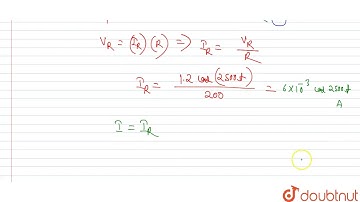 V_R = (I_R)(R) => I_R = V_R / R
I_R = 1.2 cos(2500t) / 200 = 6×10^-3 cos 2500t
A
I = I_R
doubtnut